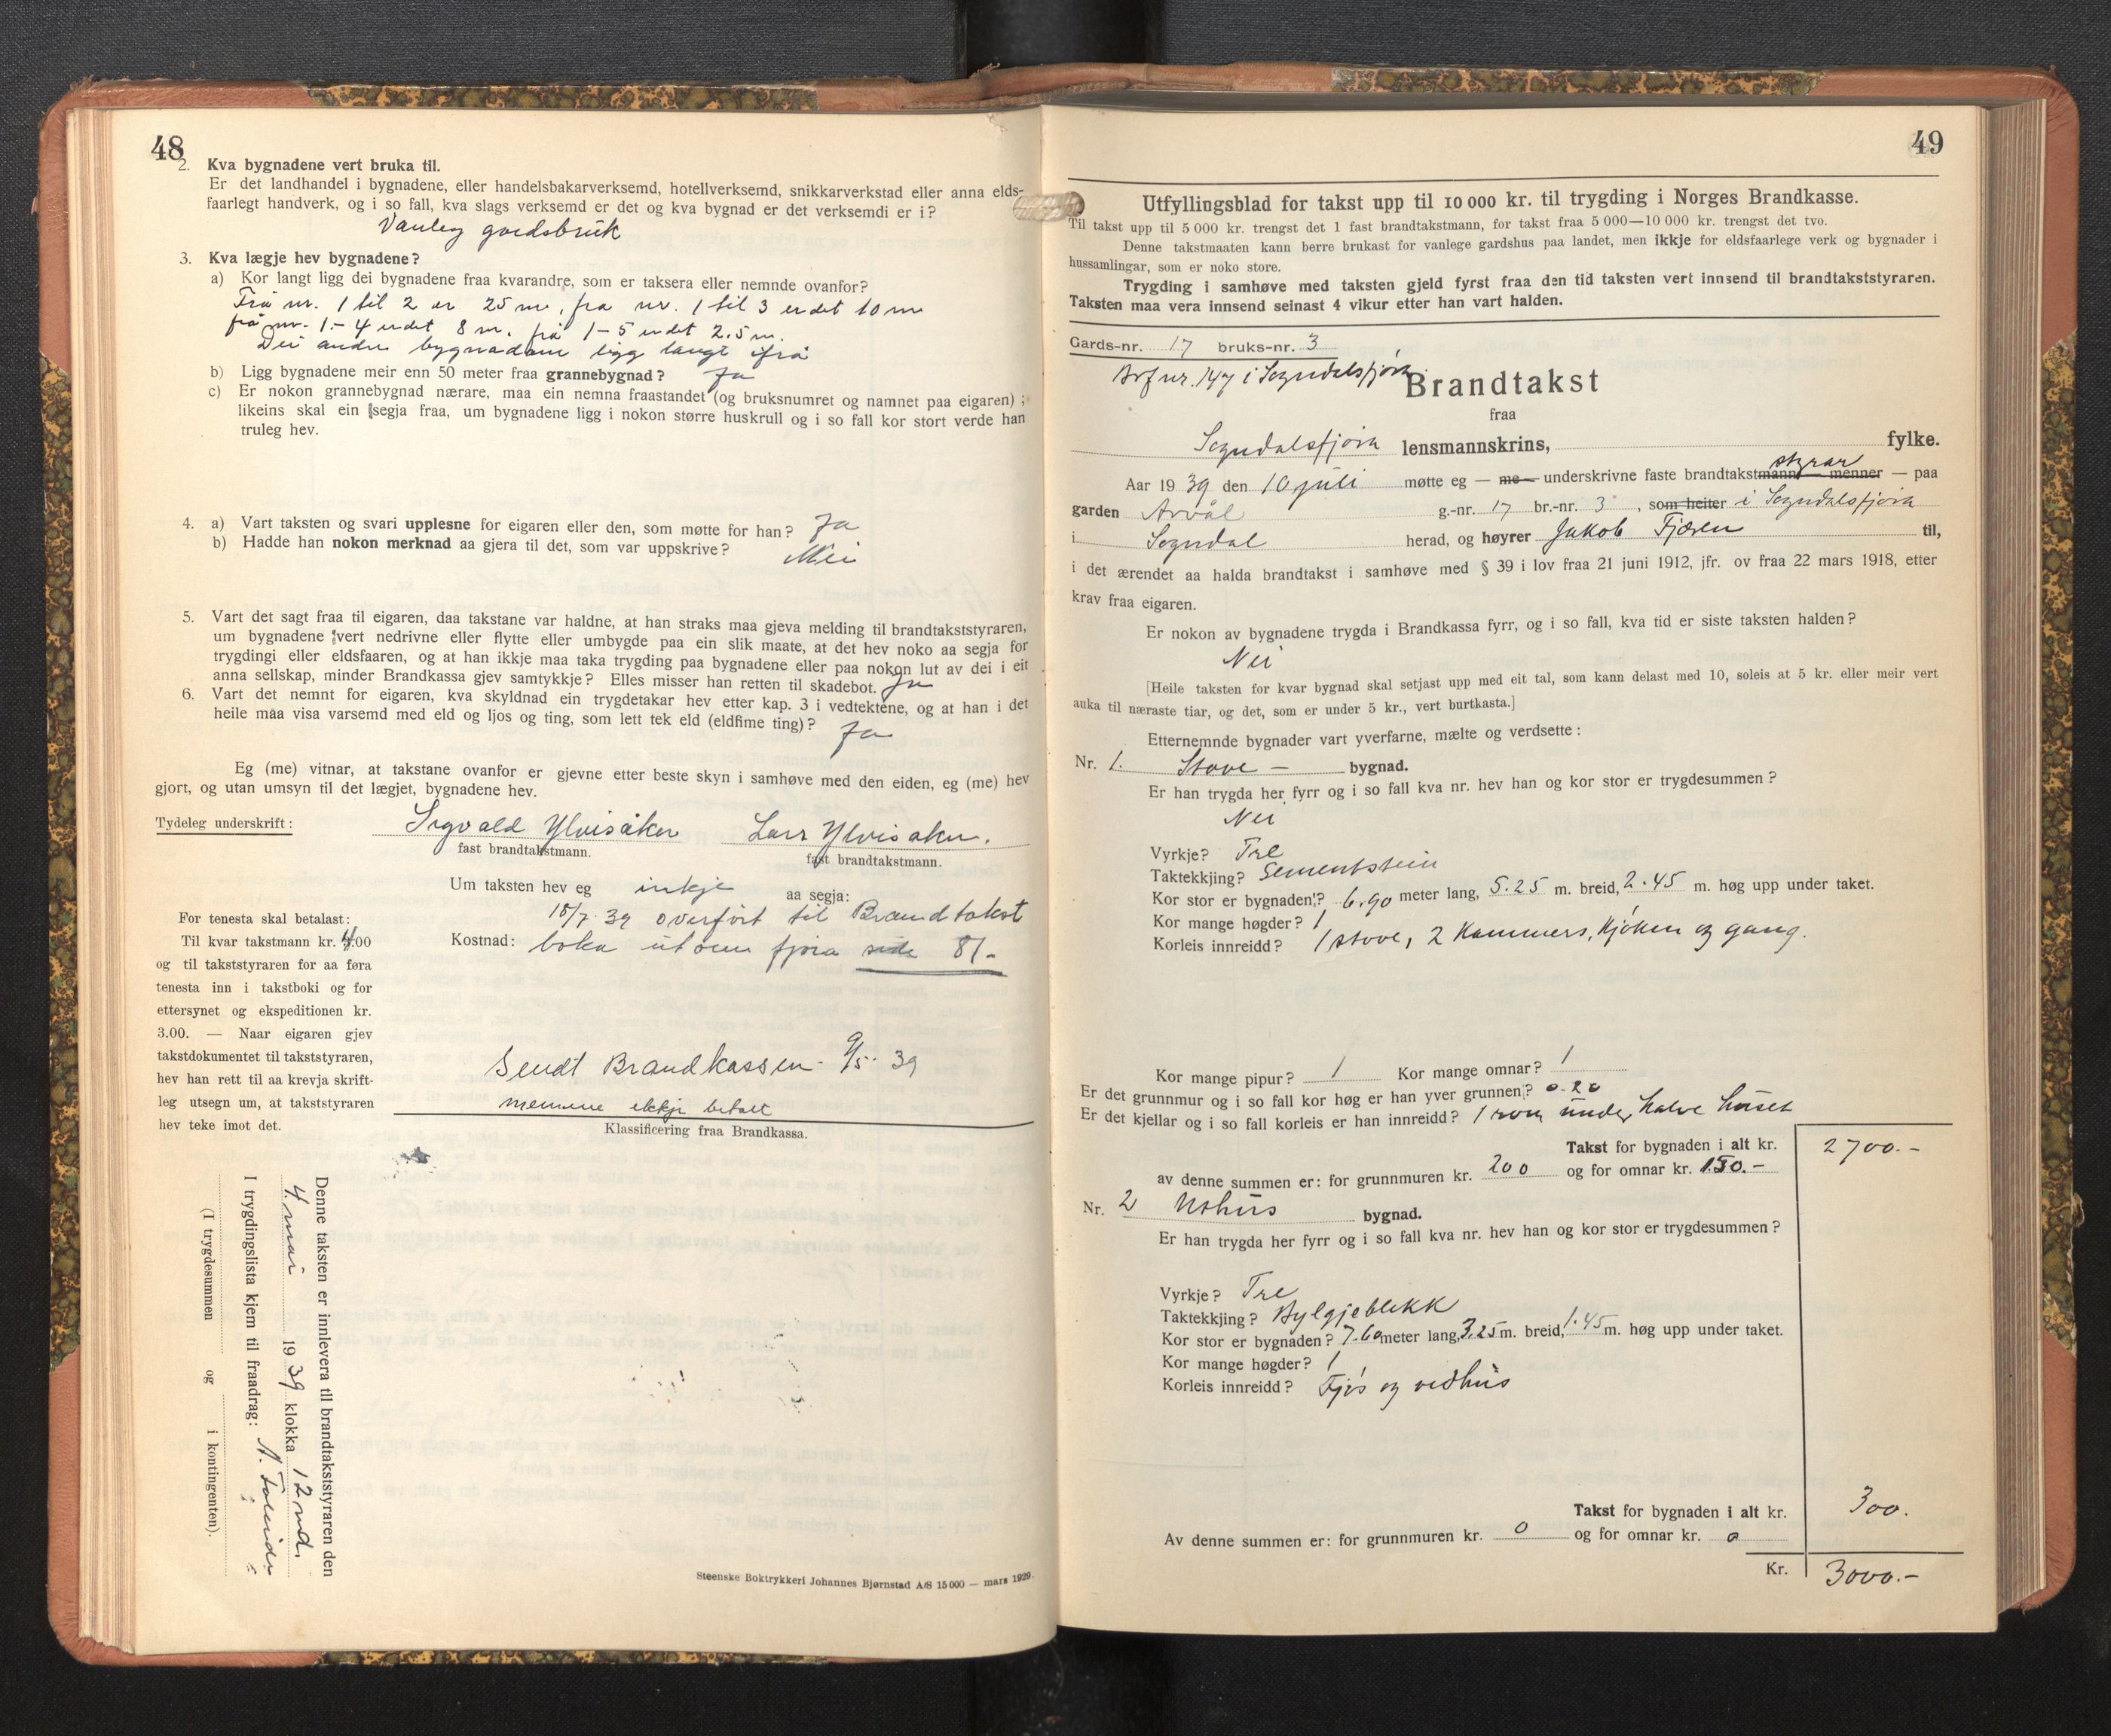 48
2. Kva bygnadene vert bruka til.
Er det landhandel i bygnadene, eller handelsbakarverksemd, hotellverksemd, snikkarverkstad eller anna elds-
faarlegt handverk, og i so fall, kva slags verksemd er det og kva bygnad er det verksemdi er i?
Vanleg gardsbruk
3. Kva lægje hev bygnadene?
a) Kor langt ligg dei bygnadene fraa kvarandre, som er taksera eller nemnde ovanfor?
Frå nr. 1 til 2 er 25 m, fra nr. 1 til 3 er det 10 m
frå nr. 1 - 4 er det 8 m. frå 1 - 5 er det 2.5 m.
Dei andre bygnadane ligg langt ifrå
b) Ligg bygnadene meir enn 50 meter fraa grannebygnad? Ja
c) Er nokon grannebygnad nærare, maa ein nemna fraastandet (og bruksnumret og namnet paa eigaren) ;
likeins skal ein segja fraa, um bygnadene ligg i nokon større huskrull og i so fall kor stort verde han
truleg hev.
4. a) Vart taksten og svari upplesne for eigaren eller den, som møtte for han? Ja
b) Hadde han nokon merknad aa gjera til det, som var uppskrive? Nei
5. Vart det sagt fraa til eigaren, daa takstane var haldne, at han straks maa gjeva melding til brandtakststyraren,
um bygnadene vert nedrivne eller flytte eller umbygde paa ein slik maate, at det hev noko aa segja for
trygdingi eller eldsfaaren, og at han ikkje maa taka trygding paa bygnadene eller paa nokon lut av dei i eit
anna sellskap, minder Brandkassa gjev samtykkje? Elles misser han retten til skadebot. Ja
6. Vart det nemnt for eigaren, kva skyldnad ein trygdetakar hev etter kap. 3 i vedtektene, og at han i det
heile maa visa varsemd med eld og ljos og ting, som lett tek eld (eldfime ting)? Ja
Eg (me) vitnar, at takstane ovanfor er gjevne etter beste skyn i samhøve med den eiden, eg (me) hev
gjort, og utan umsyn til det lægjet, bygnadene hev.
Tydeleg underskrift: Sigvald Ylvisåker Lars Ylvisaker.
fast brandtakstmann. fast brandtakstmann.
Um taksten hev eg inkje aa segja:
18/7 39 overført til Brandtakst
Kostnad: boka utom fjøra side 81-
For tenesta skal betalast:
Til kvar takstmann kr. 4.00
og til takststyraren for aa føra
tenesta inn i takstboki og for
ettersynet og ekspeditionen kr.
3.00. — Naar eigaren gjev
takstdokumentet til takststyraren,
hev han rett til aa krevja skrift-
leg utsegn um, at takststyraren
hev teke imot det.
Sendt Brandkassen 9/5 39
mennene ikkje betalt
Klassificering fraa Brandkassa.
Denne taksten er innlevera til brandtakststyraren den
4. mai 1939 klokka 12 md.
I trygdingslista kjem til fraadrag:
(I trygdesummen og i kontingenten).
Steenske Boktrykkeri Johannes Bjørnstad A/S 15 000 — mars 1929.
49
Utfyllingsblad for takst upp til 10 000 kr. til trygding i Norges Brandkasse.
Til takst upp til 5 000 kr. trengst det 1 fast brandtakstmann, for takst fraa 5 000—10 000 kr. trengst det tvo.
Denne takstmaaten kann berre brukast for vanlege gardshus paa landet, men ikkje for eldsfaarlege verk og bygnader i
hussamlingar, som er noko store.
Trygding i samhøve med taksten gjeld fyrst fraa den tid taksten vert innsend til brandtakststyraren.
Taksten maa vera innsend seinast 4 vikur etter han vart halden.
Gards-nr. 17 bruks-nr. 3
Arf nr. 147 i Sogndalsfjøra
Brandtakst
fraa
Sogndalsfjøra lensmannskrins, fylke.
Aar 1939 den 10 juli møtte eg — me — underskrivne faste brandtakstmann — menner — paa
styrar
garden Arvål g.-nr. 17 br.-nr. 3 , som heiter i Sogndalsfjøra
i Sogndal herad, og høyrer Jakob Fjæren til,
i det ærendet aa halda brandtakst i samhøve med § 39 i lov fraa 21 juni 1912, jfr. ov fraa 22 mars 1918, etter
krav fraa eigaren.
Er nokon av bygnadene trygda i Brandkassa fyrr, og i so fall, kva tid er siste taksten halden?
Nei
[Heile taksten for kvar bygnad skal setjast upp med eit tal, som kann delast med 10, soleis at 5 kr. eller meir vert
auka til næraste tiar, og det, som er under 5 kr., vert burtkasta.]
Etternemnde bygnader vart yverfarne, mælte og verdsette :
Nr. 1. Stove - bygnad.
Er han trygda her fyrr og i so fall kva nr. hev han og kor stor er trygdesummen ?
Nei
Vyrkje? Tre
Taktekkjing? Sementstein
Kor stor er bygnaden? 6.90 meter lang, 5.25 m. breid, 2.45 m. høg upp under taket.
Kor mange høgder? 1
Korleis innreidd? 1 stove, 2 Kammers, Kjøken og gang.
Kor mange pipur? 1 Kor mange omnar? 1
Er det grunnmur og i so fall kor høg er han yver grunnen? 0.20
Er det kjellar og i so fall korleis er han innreidd? 1 rom under halve huset
Takst for bygnaden i alt kr. 2700.-
av denne summen er: for grunnmuren kr. 200 og for omnar kr. 150.-
Nr. 2 Uthus bygnad.
Er han trygda her fyrr og i so fall kva nr. hev han og kor stor er trygdesummen ?
Vyrkje? Tre
Taktekkjing? Bylgjeblekk
Kor stor er bygnaden? 7.60 meter lang, 3.25 m. breid, 1.45 m. høg upp under taket.
Kor mange høgder? 1
Korleis innreidd? Fjøs og vedhus
Takst for bygnaden i alt kr. 300.
Av denne summen er: for grunnmuren kr. 0 og for omnar kr. 0
Kr. 3000.-